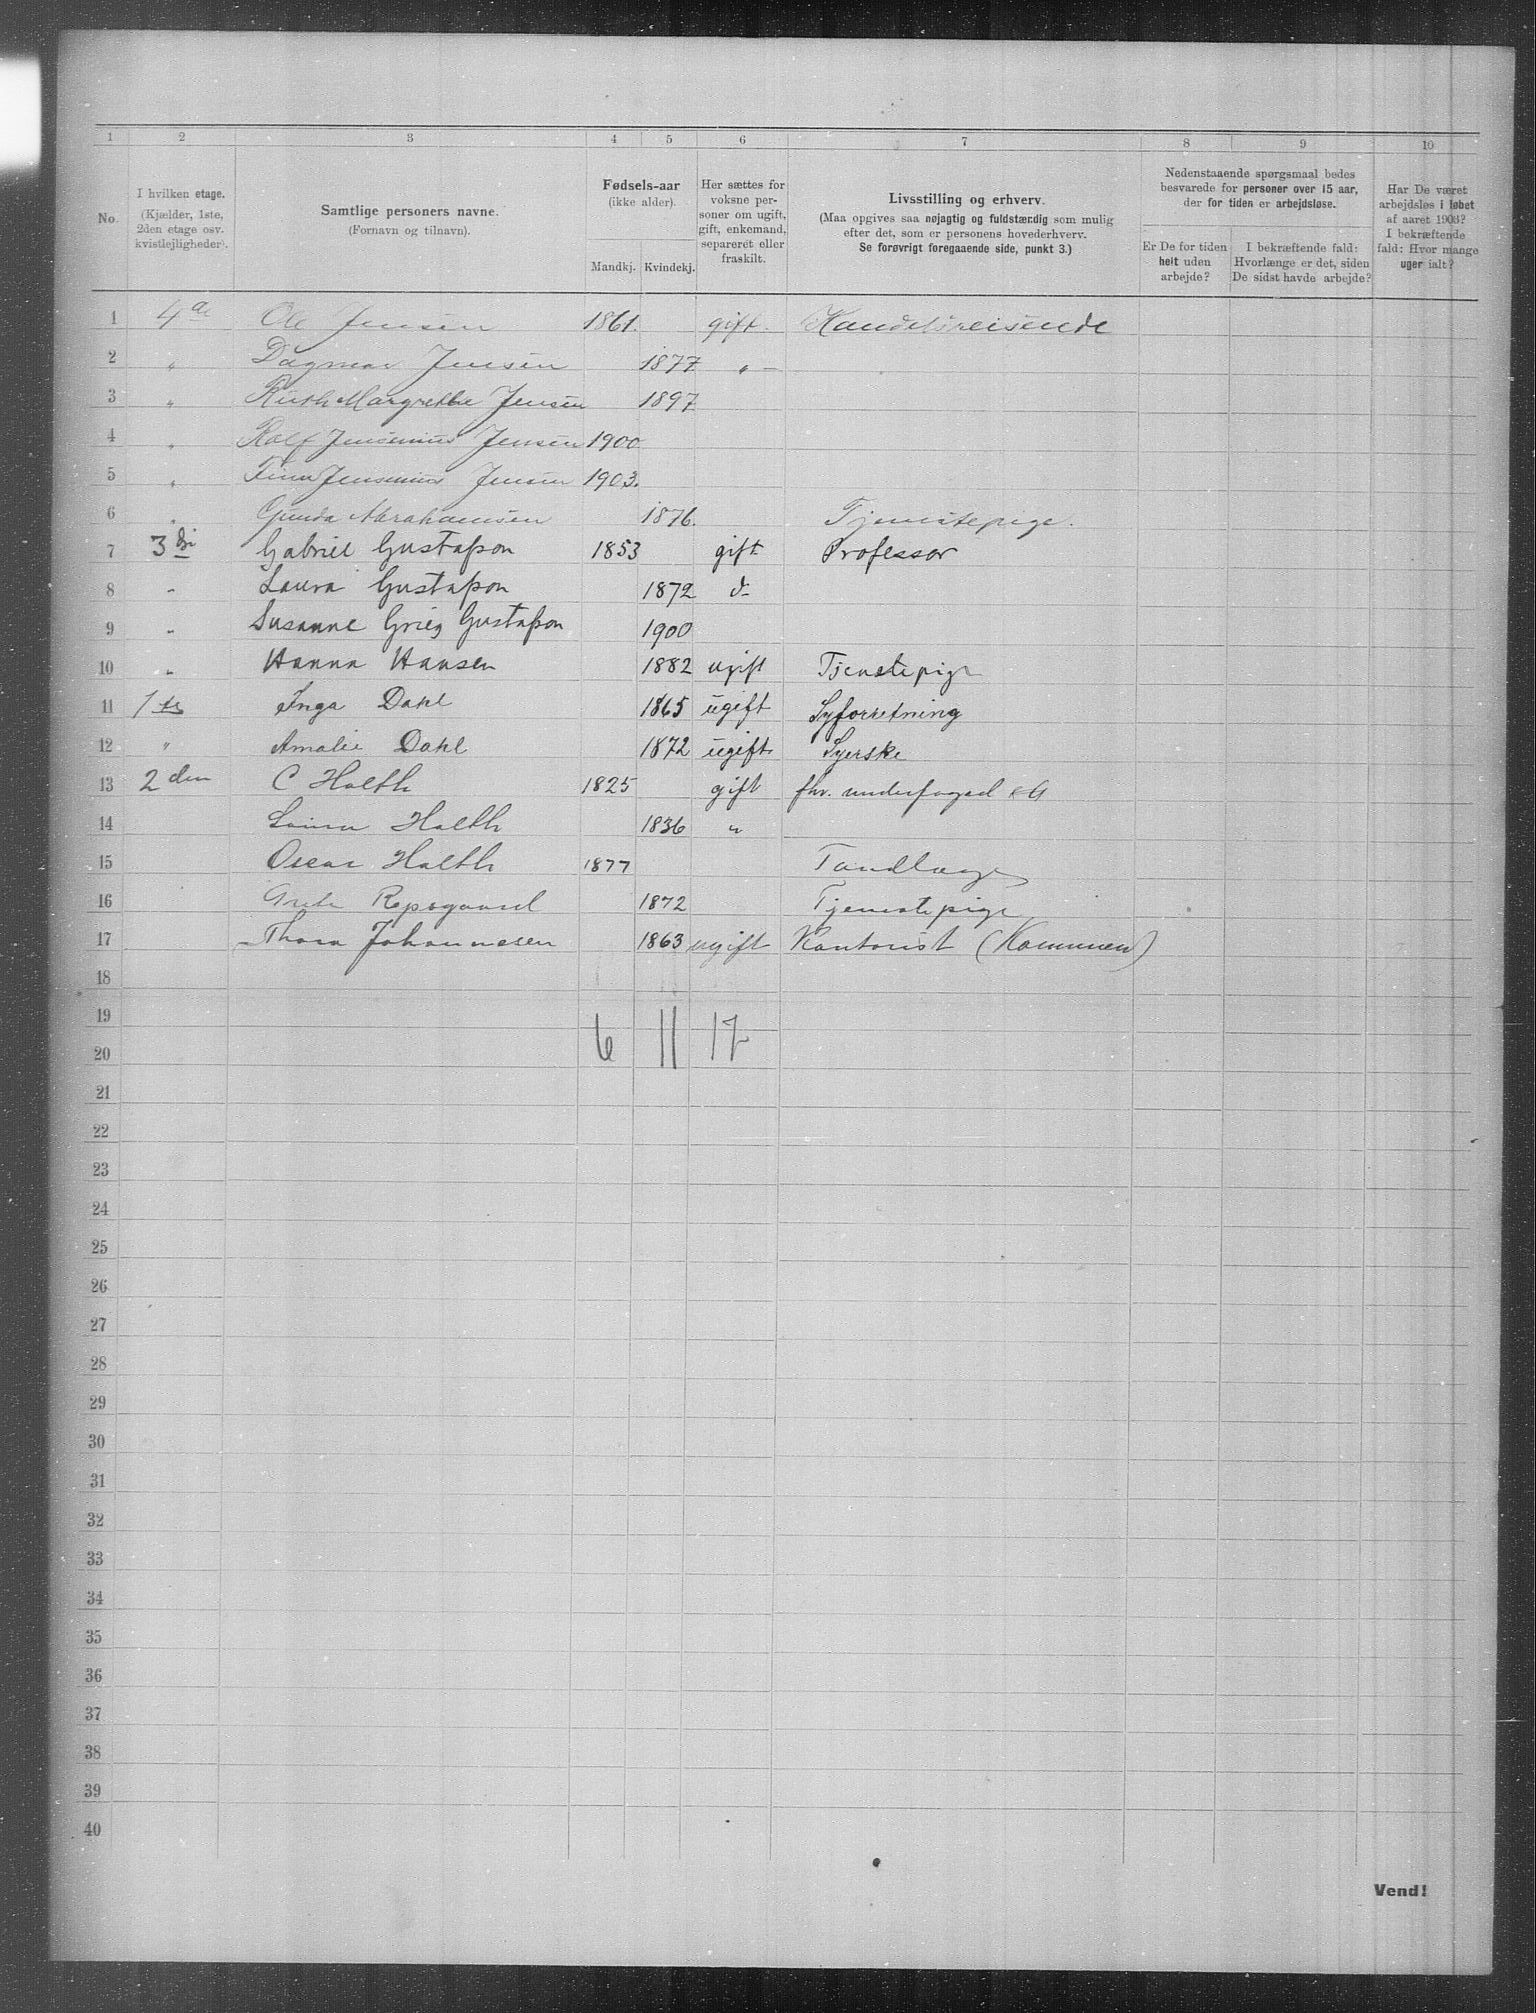 1 2 3 4 5 6 7 8 9 10
No. I hvilken etage. (Kjælder, 1ste, 2den etage osv. kvistlejligheder). Samtlige personers navne. (Fornavn og tilnavn). Fødsels-aar (ikke alder). Mandkj. Kvindekj. Her sættes for voksne personer om ugift, gift, enkemand, separeret eller fraskilt. Livsstilling og erhverv. (Maa opgives saa nøjagtig og fuldstændig som mulig efter det, som er personens hovederhverv. Se forøvrigt foregaaende side, punkt 3.) Nedenstaaende spørgsmaal bedes besvarede for personer over 15 aar, der for tiden er arbejdsløse. Er De for tiden helt uden arbejde? I bekræftende fald: Hvorlænge er det, siden De sidst havde arbejde? Har De været arbejdsløs i løbet af aaret 1903? I bekræftende fald: Hvor mange uger ialt?
1 4de Ole Jensen 1861. gift. Handelsreisende
2 " Dagmar Jensen 1877 " –
3 " Ruth Margrethe Jensen 1897
4 " Rolf Jensenius Jensen 1900
5 " Finn Jensenius Jensen 1903.
6 " Gunda Abrahamsen 1876. Tjenestepige.
7 3die Gabriel Gustafson 1853 gift Professor
8 " Laura Gustafson 1872 d–
9 " Susanne Grieg Gustafson 1900
10 " Hanna Hansen 1882 ugift Tjenstepige
11 1ste Inga Dahl 1865 ugift Syforretning
12 " Amalie Dahl 1872 ugift Syerske
13 2den C Holth 1825 gift fhv. underfoged
14 Holth 1836 "
15 Oscar Holth 1877 Tandlæge
16 1872 Tjenestepige
17 Thora Johannesen 1863 ugift Kontorist (Kommunen)
18
19
6 11 17
20
21
22
23
24
25
26
27
28
29
30
31
32
33
34
35
36
37
38
39
40
Vend!